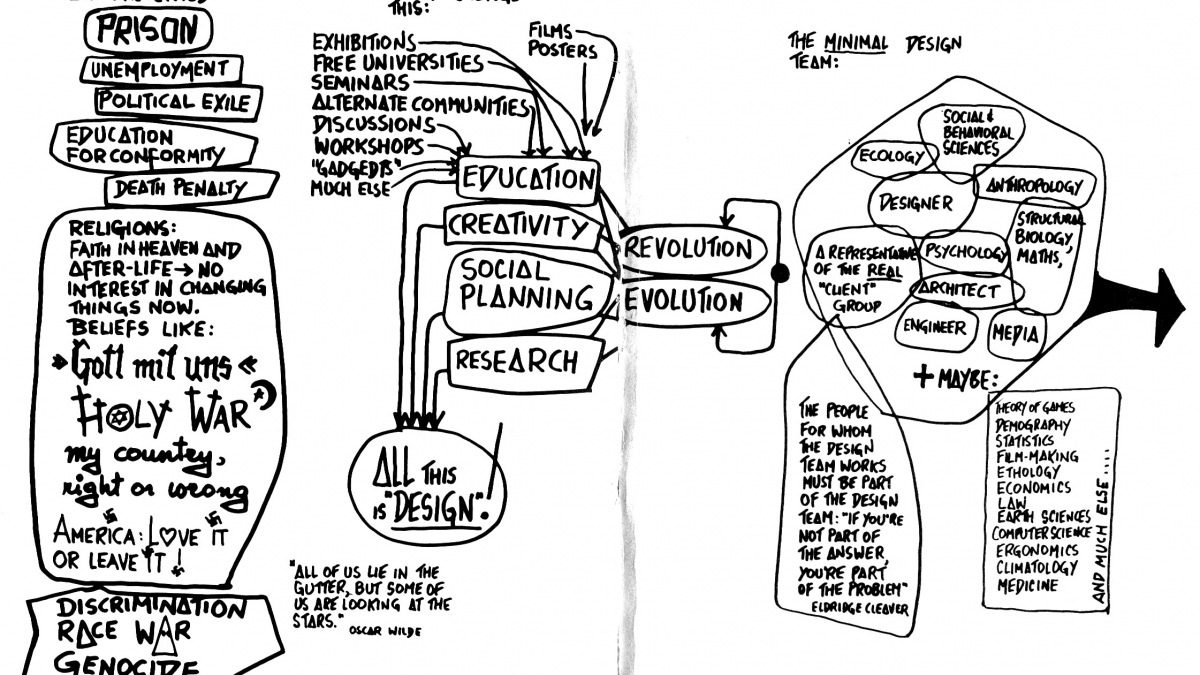 THIS:
PRISON
UNEMPLOYMENT
POLITICAL EXILE
EDUCATION
FOR CONFORMITY
DEATH PENALTY
RELIGIONS:
FAITH IN HEAVEN AND
AFTER-LIFE → NO
INTEREST IN CHANGING
THINGS NOW.
BELIEFS LIKE:
»Gott mit uns«
HOLY WAR
my country,
right or wrong
AMERICA: LOVE IT
OR LEAVE IT!
DISCRIMINATION
RACE WAR
GENOCIDE
EXHIBITIONS
FREE UNIVERSITIES
SEMINARS
ALTERNATE COMMUNITIES
DISCUSSIONS
WORKSHOPS
"GADGEDTS"
MUCH ELSE
FILMS
POSTERS
EDUCATION
CREATIVITY
SOCIAL
PLANNING
RESEARCH
REVOLUTION
EVOLUTION
ALL THIS
IS "DESIGN"!
"ALL OF US LIE IN THE
GUTTER, BUT SOME OF
US ARE LOOKING AT THE
STARS."
OSCAR WILDE
THE MINIMAL DESIGN
TEAM:
SOCIAL &
BEHAVIORAL
SCIENCES
ECOLOGY
ANTHROPOLOGY
DESIGNER
STRUCTURAL
BIOLOGY,
MATHS,
A REPRESENTATIVE
OF THE REAL
"CLIENT"
GROUP
PSYCHOLOGY
ARCHITECT
ENGINEER
MEDIA
+ MAYBE:
THE PEOPLE
FOR WHOM
THE DESIGN
TEAM WORKS
MUST BE PART
OF THE DESIGN
TEAM: "IF YOU'RE
NOT PART OF
THE ANSWER,
YOU'RE PART
OF THE PROBLEM"
ELDRIDGE CLEAVER
THEORY OF GAMES
DEMOGRAPHY
STATISTICS
FILM-MAKING
ETHOLOGY
ECONOMICS
LAW
EARTH SCIENCES
COMPUTER SCIENCE
ERGONOMICS
CLIMATOLOGY
MEDICINE
AND MUCH ELSE....